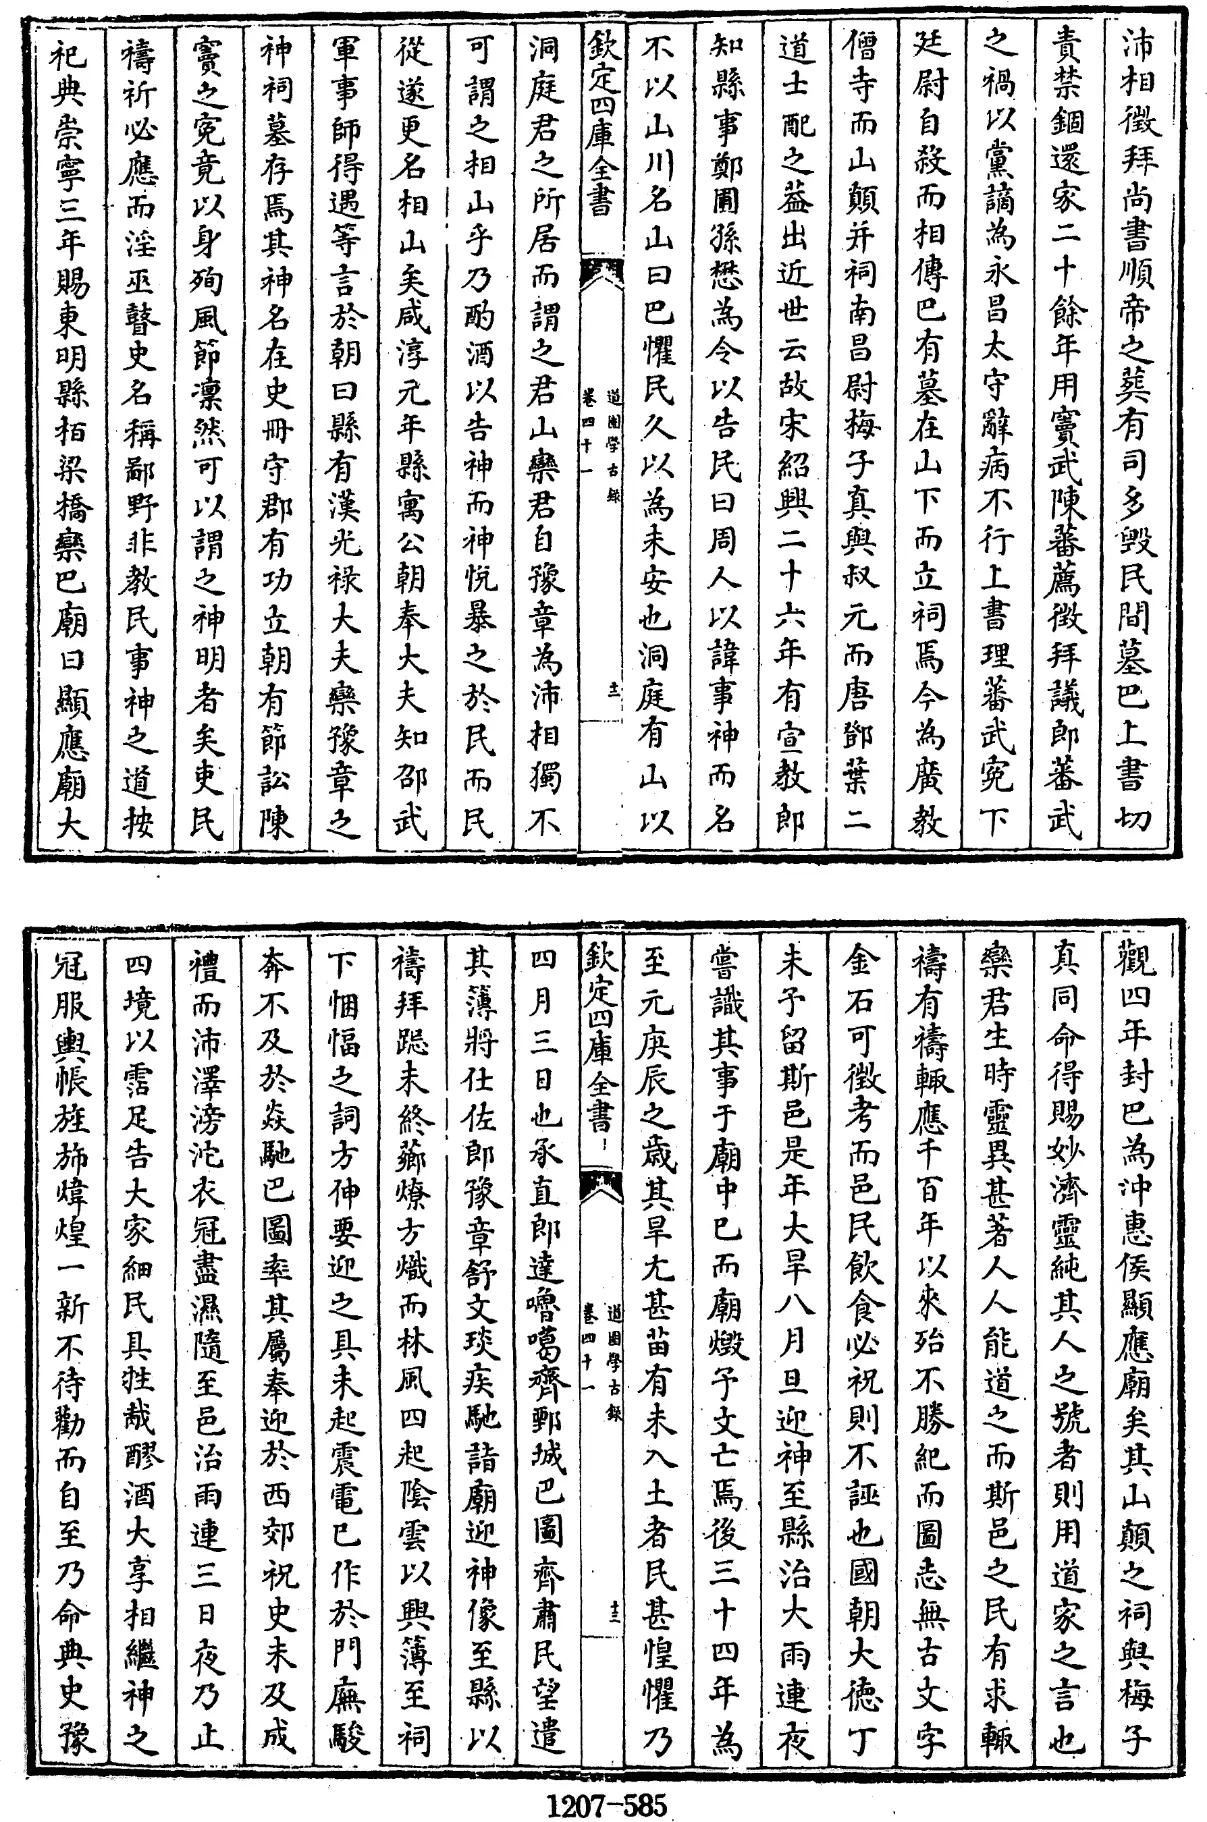 沛相徵拜尚書順帝之葬有司多毁民間墓巴上書切
責禁錮還家二十餘年用竇武陳蕃薦徴拜議郎蕃武
之禍以黨謫為永昌太守辭病不行上書理蕃武寃下
廷尉自殺而相傳巴有墓在山下而立祠焉今為廣教
僧寺而山顛并祠南昌尉梅子真與叔元而唐鄧葉二
道士配之葢出近世云故宋紹興二十六年有宣教郎
知縣事鄭圃孫懋為令以告民曰周人以諱事神而名
不以山川名山曰巴懼民久以為未安也洞庭有山以
欽定四庫全書
道園學古錄
卷四十一
十二
洞庭君之所居而謂之君山欒君自豫章為沛相獨不
可謂之相山乎乃酌酒以告神而神悦暴之於民而民
從遂更名相山矣咸淳元年縣寓公朝奉大夫知邵武
軍事師得遇等言於朝曰縣有漢光禄大夫欒豫章之
神祠墓存焉其神名在史冊守郡有功立朝有節訟陳
竇之寃竟以身殉風節凛然可以謂之神明者矣吏民
禱祈必應而淫巫瞽史名稱鄙野非教民事神之道按
祀典崇寧三年賜東明縣栢梁橋欒巴廟曰顯應廟大
觀四年封巴為沖惠侯顯應廟矣其山顛之祠與梅子
真同命得賜妙濟靈純其人之號者則用道家之言也
欒君生時靈異甚著人人能道之而斯邑之民有求輙
禱有禱輙應千百年以來殆不勝紀而圖志無古文字
金石可徴考而邑民飲食必祝則不誣也國朝大德丁
未予留斯邑是年大旱八月旦迎神至縣治大雨連夜
嘗識其事于廟中已而廟燬予文亡焉後三十四年為
至元庚辰之歳其旱尤甚苗有未入土者民甚惶懼乃
欽定四庫全書
道園學古錄
卷四十一
十三
四月三日也承直郎達嚕噶齊鄄城巴圖齊肅民望遣
其簿將仕佐郎豫章舒文琰疾馳詣廟迎神像至縣以
禱拜跽未終薌燎方熾而林風四起陰雲以興簿至祠
下悃愊之詞方伸要迎之具未起震電已作於門廡駿
奔不及於焱馳巴圖率其屬奉迎於西郊祝史未及成
禮而沛澤滂沱衣冠盡濕隨至邑治雨連三日夜乃止
四境以霑足告大家細民具牲胾醪酒大享相繼神之
冠服輿帳旌斾煒煌一新不待勸而自至乃命典史豫
1207-585